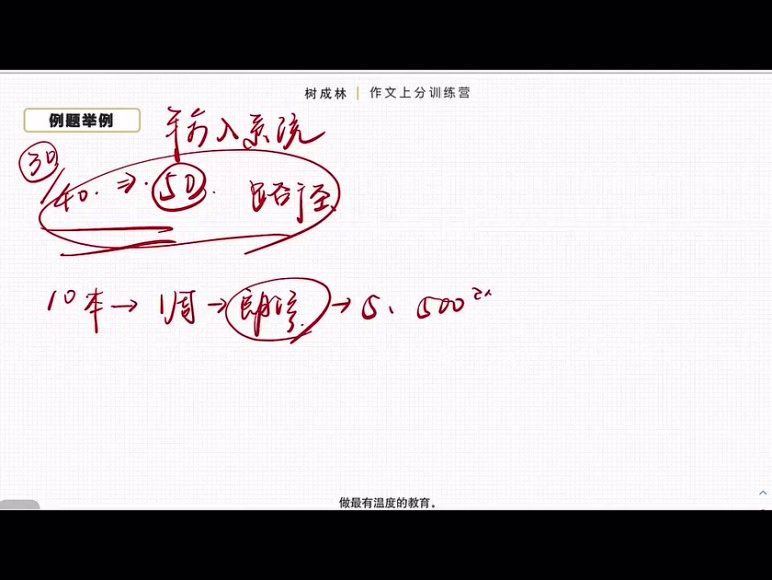 树成林 | 作文上分训练营
例题举例
输入系统
30/40. ⇒ 50. 路径
10本 → 1周 → 朗读 → 5、500
做最有温度的教育。